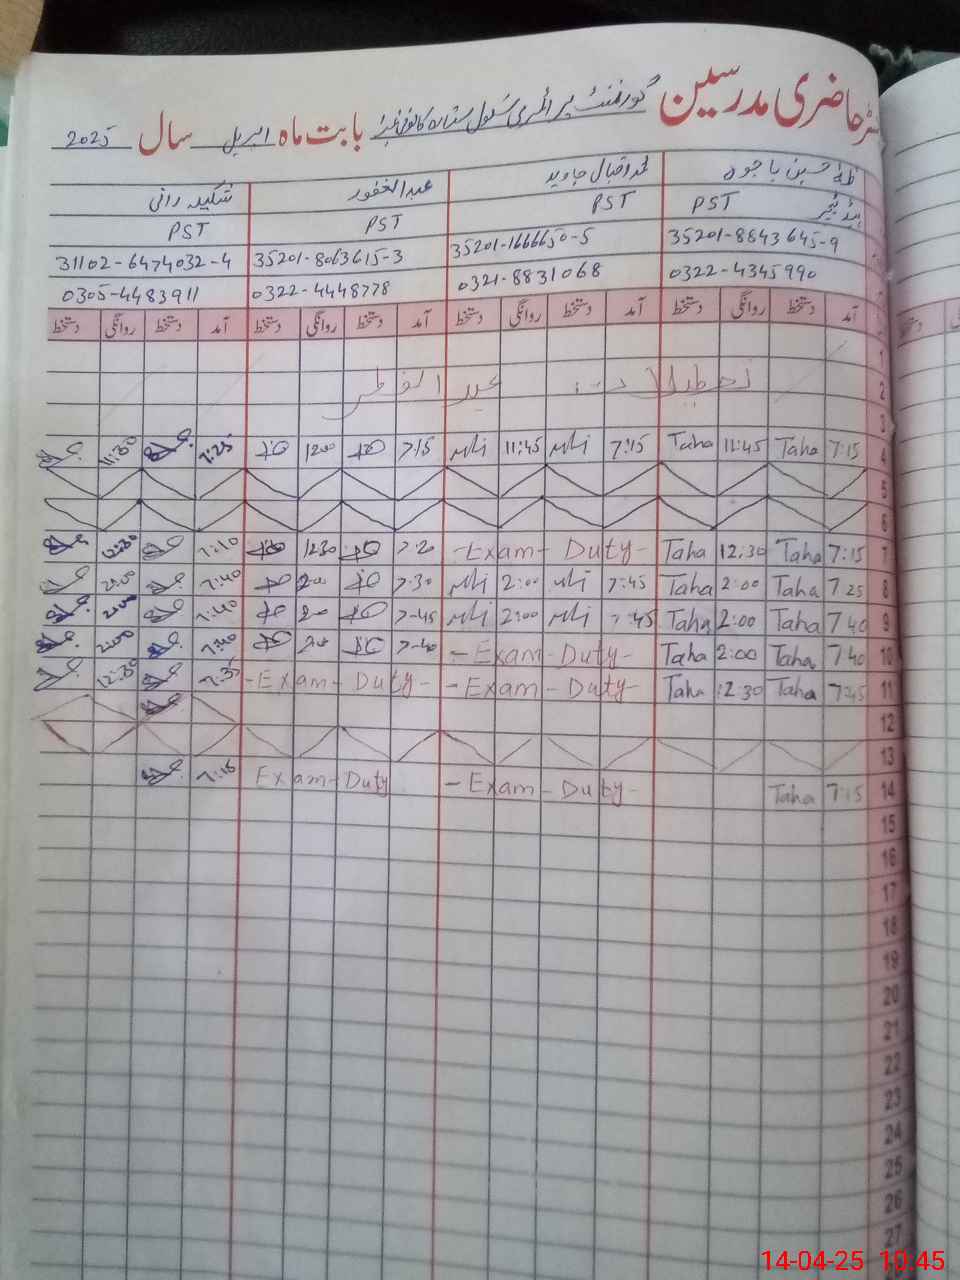 رجسٹر حاضری مدرسین گورنمنٹ پرائمری سکول ستارہ کالونی بابت ماہ اپریل سال 2025
طٰہٰ حسین باجوہ محمد اقبال جاوید عبدالغفور شکیلہ رانی
ہیڈ ٹیچر PST PST PST PST
35201-8843645-9 35201-1666650-5 35201-8063615-3 31102-6474032-4
0322-4345990 0321-8831068 0322-4448778 0305-4483911
آمد دستخط روانگی دستخط آمد دستخط روانگی دستخط آمد دستخط روانگی دستخط آمد دستخط روانگی دستخط
1
2 تعطیلات عید الفطر
3
4 7:15 Taha 11:45 Taha 7:15 11:45 7:15 1200 7:25 11:30
5
6
7 7:15 Taha 12:30 Taha -Exam- Duty- 7:20 1230 7:10 12:30
8 7:25 Taha 2:00 Taha 7:45 2:00 7:30 200 7:40 2:00
9 7:40 Taha 2:00 Taha 7:45 2:00 7:45 200 7:40 2:00
10 7:40 Taha 2:00 Taha -Exam- Duty- 7:40 200 7:40 2:00
11 7:45 Taha 12:30 Taha -Exam- Duty- -Exam- Duty- 7:35 12:30
12
13
14 7:15 Taha -Exam- Duty- Exam- Duty 7:15
15
16
17
18
19
20
21
22
23
24
25
26
27
14-04-25 10:45